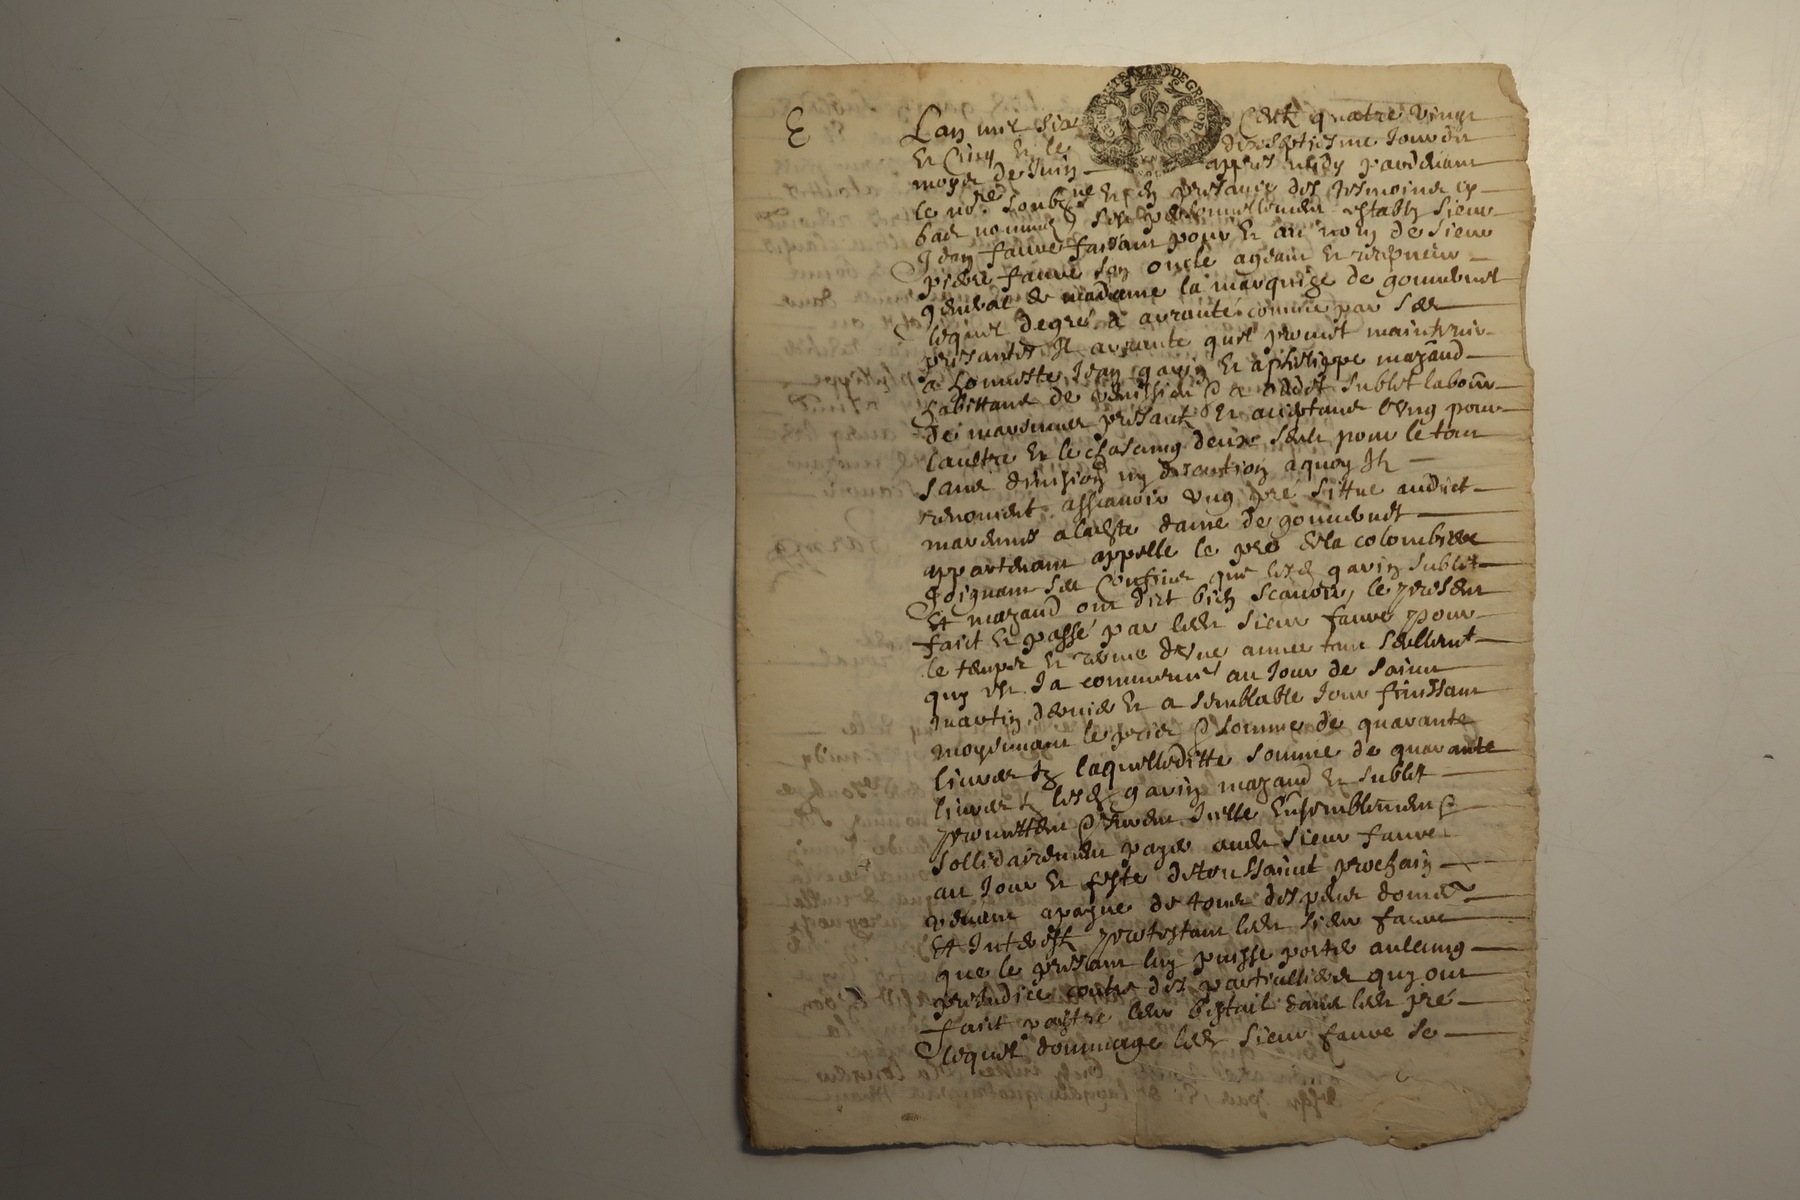 E
GENERALITE DE GRENOBLE
Lan mil six cent quatre vingt
et cinq et le dixseptiesme jour du
moys de juin apres midy pardevant
le nore soubzne et en presance des tesmoins cy
bas nommes sest personnellement estably sieur
Jean fauve faisant pour et au nom de sieur
pierre fauve son oncle agent et recepveur
general de madame la marquise de gouvernet
lequel de gre a arranté comme par ces
presantes il arrante quil promet maintenir
a honneste Jean gavin et a phelippe mazand
habittans de a Oddet sublet labour
de marennes presants et aceptans lung pour
laultre et le chascung deux seul pour le tout
sans division ny discution a quoy ils
renoncent assavoir ung pré sittue audict
marennes a ladte dame de gouvernet
appartenant appelle le pre de la colombiere
Joignant ses confins que lesd gavin sublet
Et mazand ont dict bien scavoir, le present
faict et passé par ledt sieur fauve pour
le temps et terme dune annee tant seullemt
quy est Ja commence au jour de saint
martin dernier et a semblable jour finissant
moyennant le prix & somme de quarante
livres tz laquelleditte somme de quarante
livres tz lesd gavin mazand et sublet
promettent & seront Icelle Ensemblement &
sollidairement payer audt sieur fauve
au jour et feste de toussaint prochain
venant a payne de tous despens domaes
Et Interestz protestant ledt sieur fauve
que le presant luy puisse porter aulcung
prejudice contre des particulliers quy ont
faict paistre leur bestail dans ledt pré
lequel dommage ledt sieur fauve se